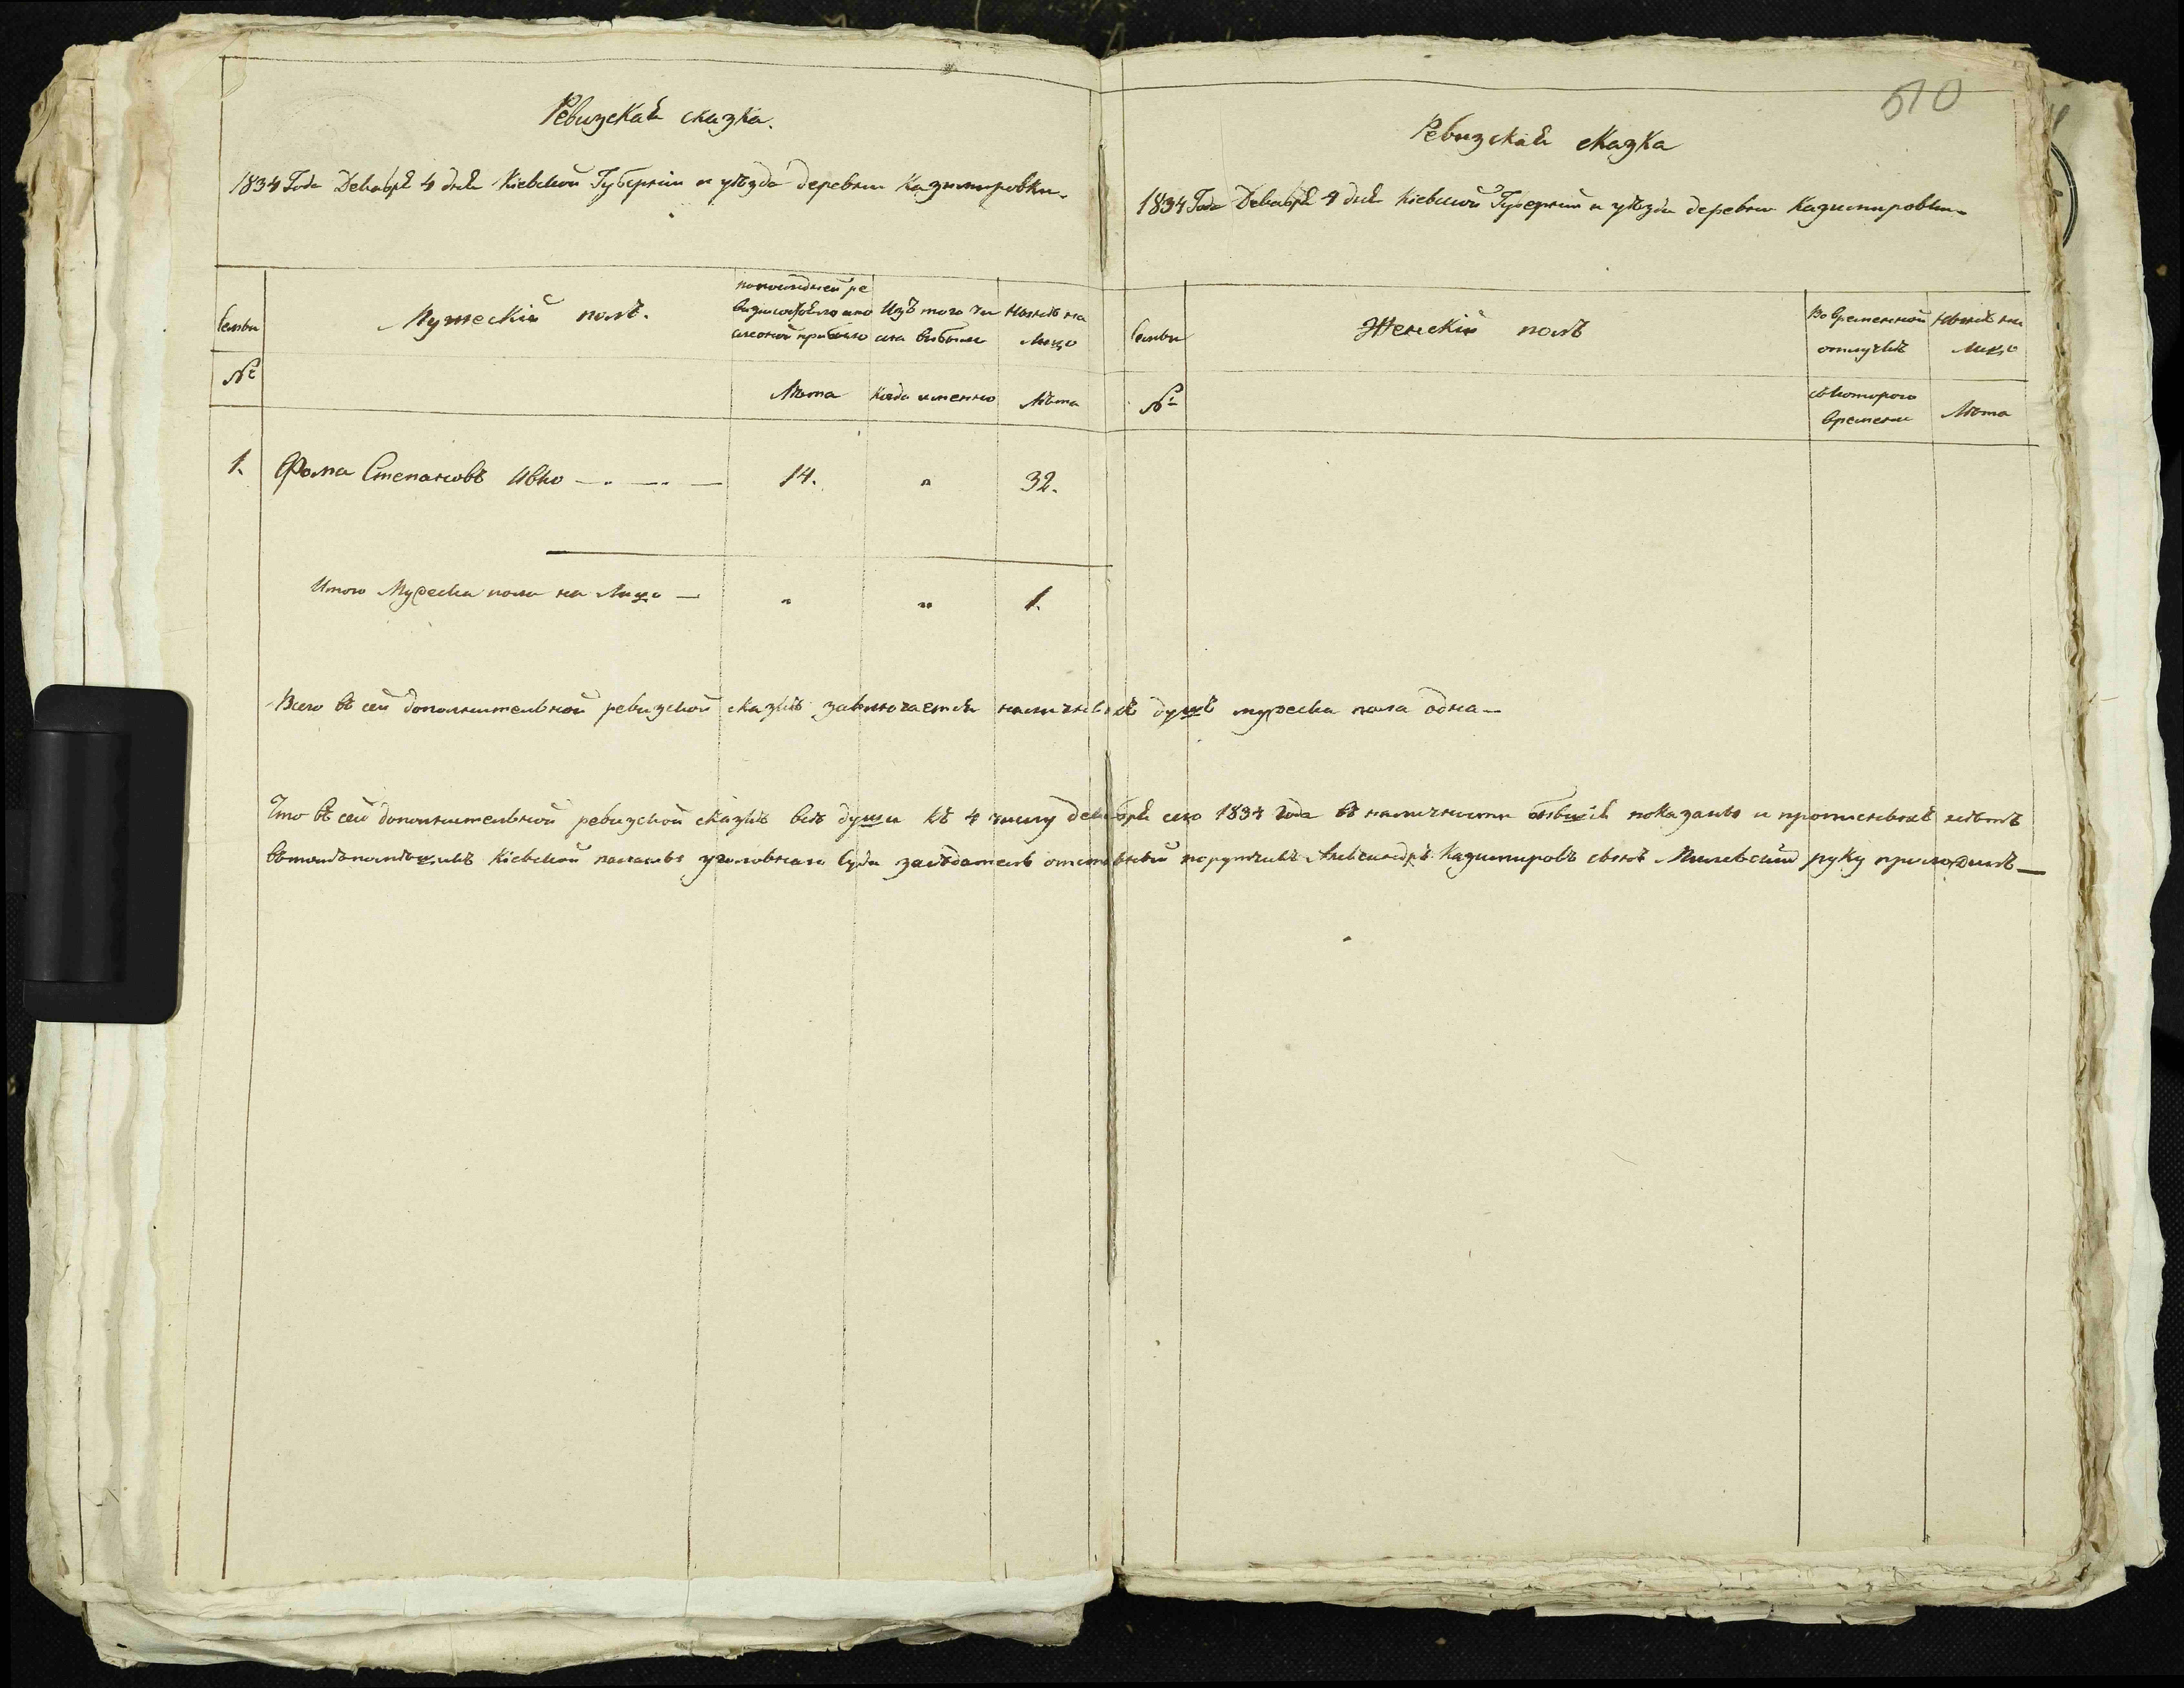 Ревизская сказка.
1834 Года Декабря 4 дня Кіевской Губерніи и уѣзда деревни Казимировки.
Семьи
Мужескій полъ.
по последней ре
визіи состояло и по
оной прибыло
Изъ того чи
сла выбыло
Нынѣ на
лицо
№
Лѣта
Когда именно
Лѣта
1. Фома Степановъ Ивко 14. " 32.
Итого Мужеска пола на Лицо — " " 1.
510
Ревизская сказка
1834 Года Декабря 4 дня Кіевской Губерніи и уѣзда деревни Казимировки
Семьи
Женскій полъ
Во временной
отлучкѣ
Нынѣ на
лицо
№
съ котораго
времени
Лѣта
Всего въ сей дополнительной ревизской сказкѣ заключается наличныхъ душъ мужеска пола одна —
Что въ сей дополнительной ревизской сказкѣ всѣ души къ 4 числу декабря сего 1834 года въ наличности показаны и прописныхъ нѣтъ
Кіевской палаты уголовнаго Суда засѣдатель отставный порутчикъ Александръ Казимировъ сынъ руку приложилъ —